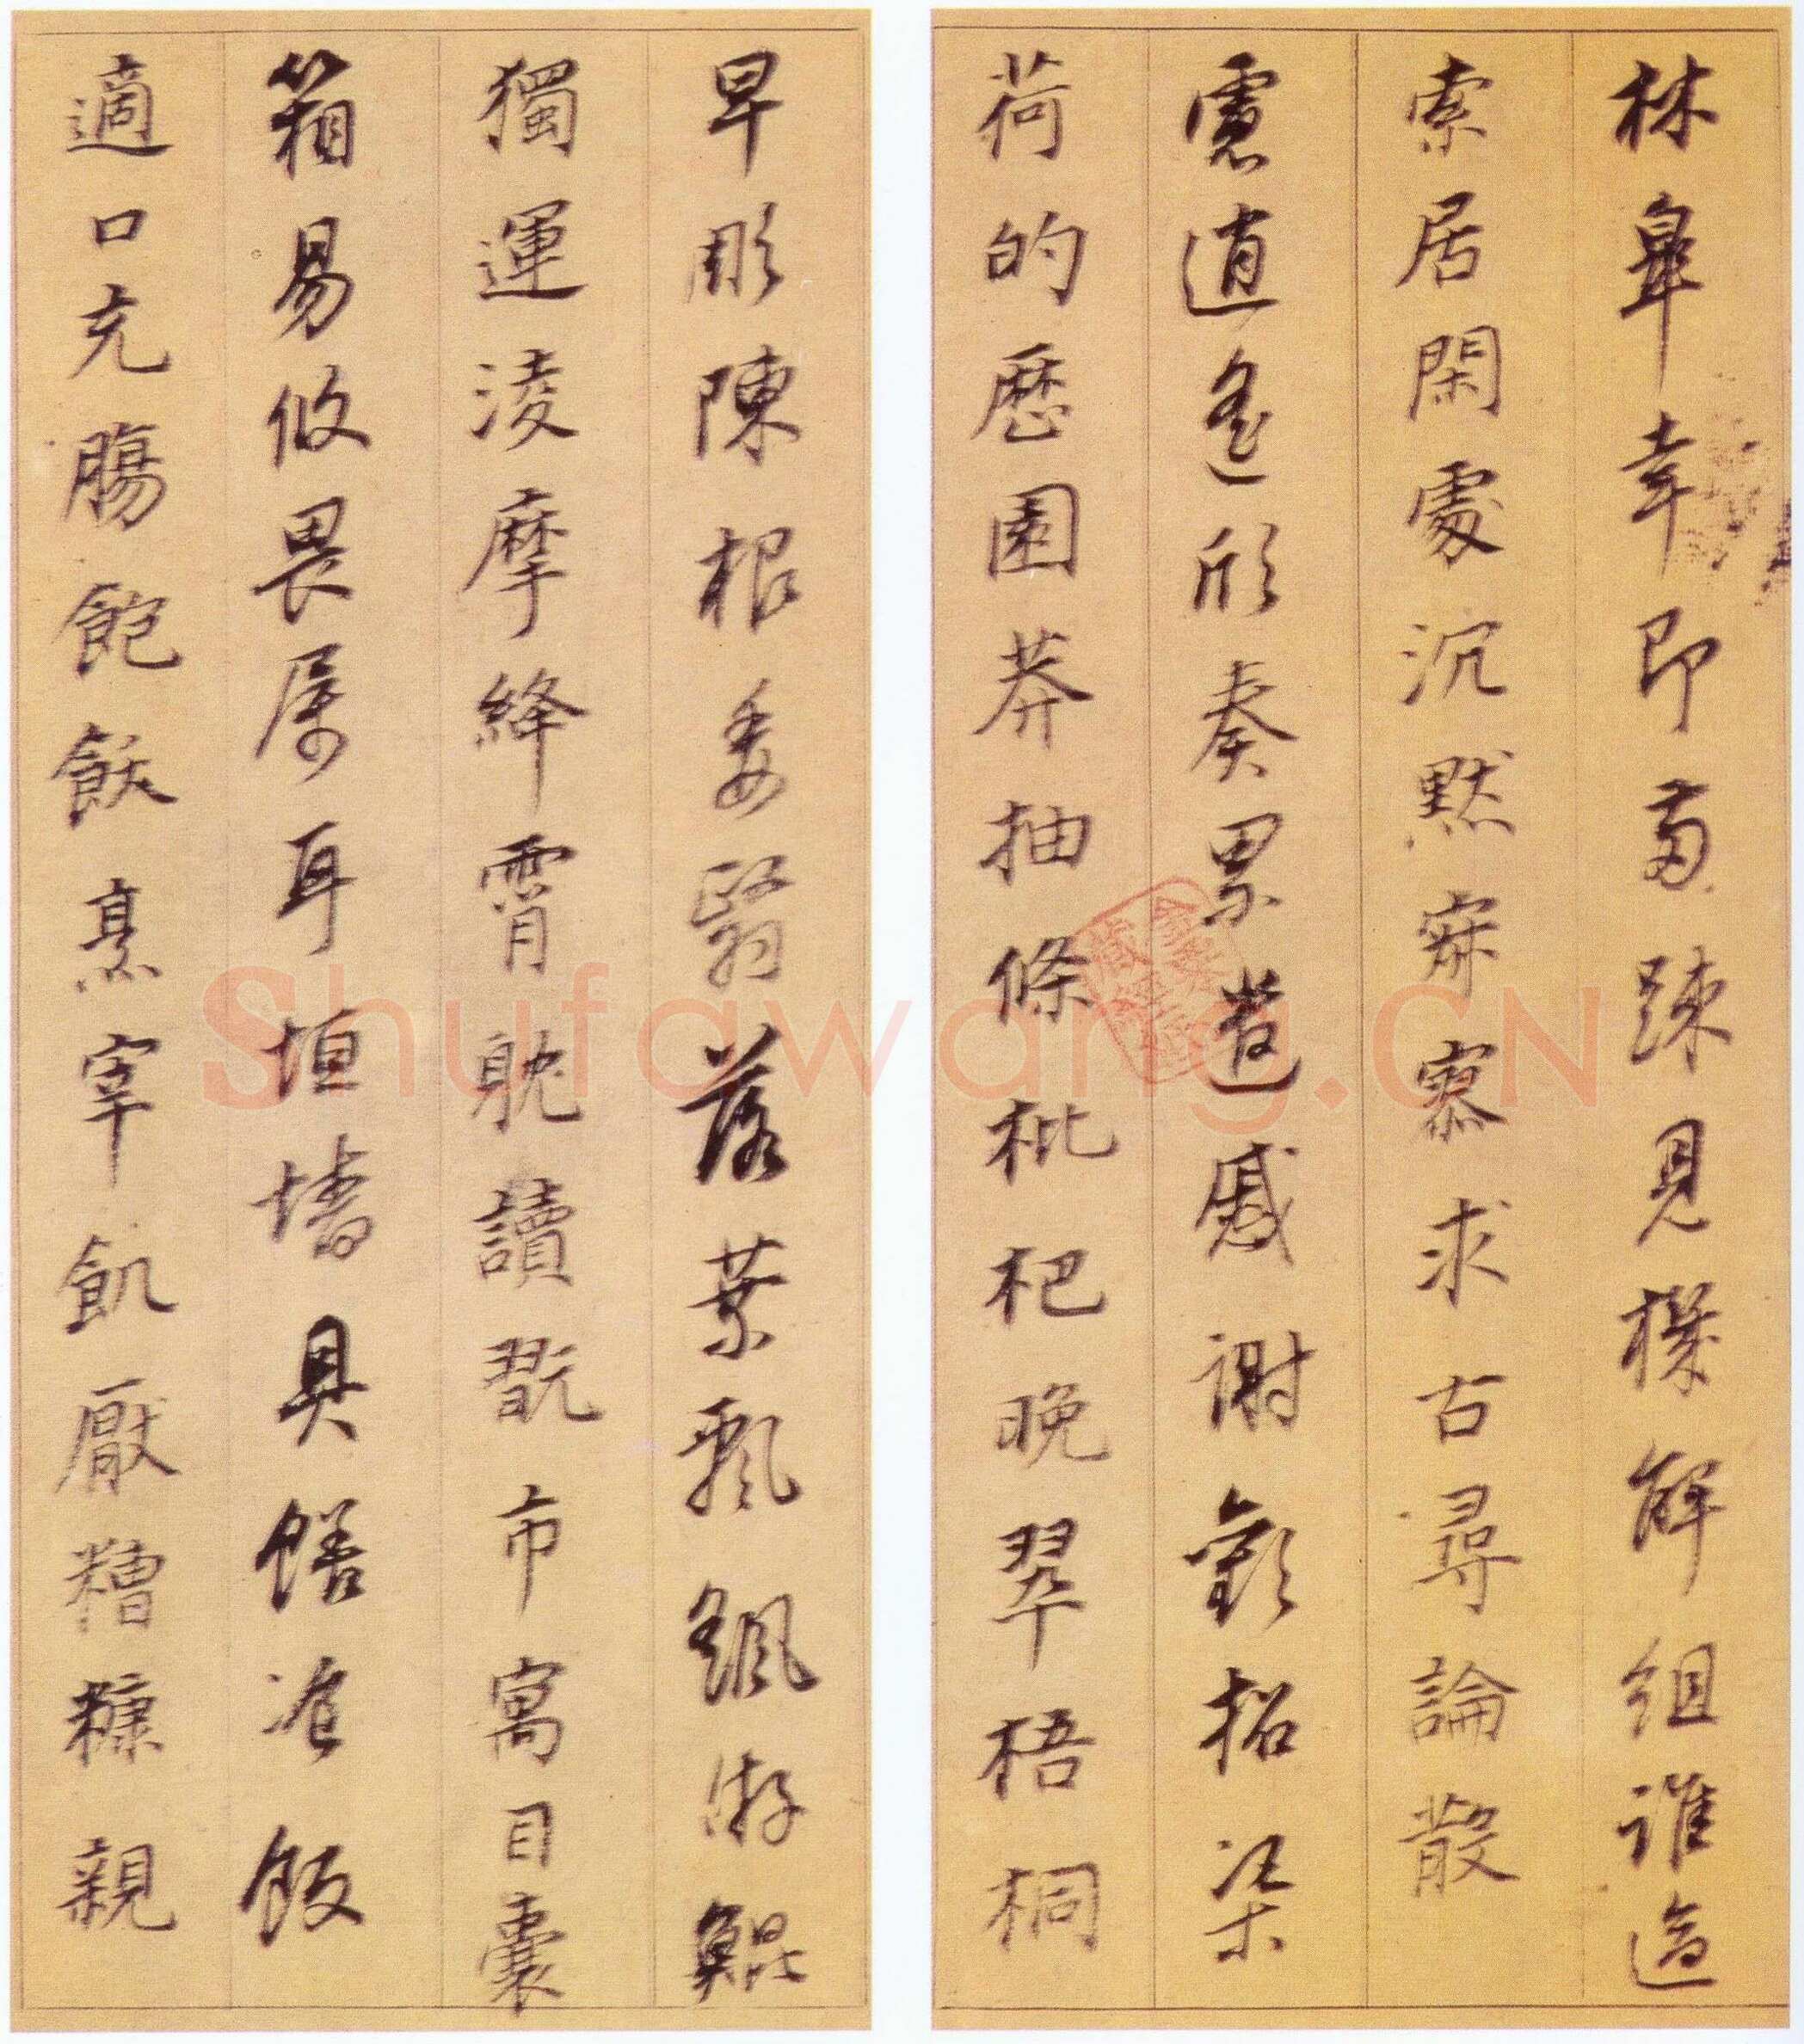 林皋幸即兩疎見機解組誰逼
索居閑處沉默寂寥求古尋論散
慮逍遙欣奏累遣慼謝歡招渠
荷的歷園莽抽條枇杷晚翠梧桐
早彫陳根委翳落葉飄颻游鯤
獨運淩摩絳霄耽讀翫市寓目囊
箱易攸畏屬耳垣墻具饍飡飯
適口充腸飽飫烹宰飢厭糟糠親
Shufawang.CN